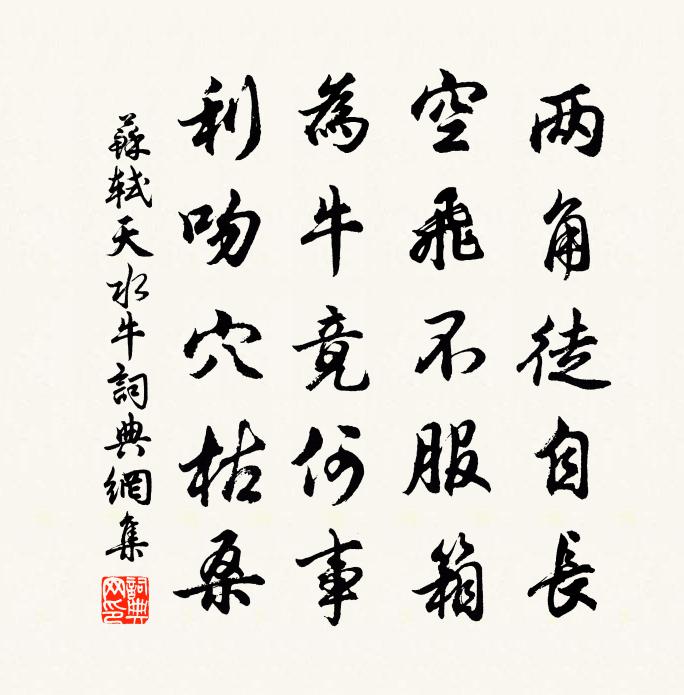 两角徒自長
空飛不服箱
為牛竟何事
利吻穴枯桑
蘇軾天水牛詞典網集
詞典網印